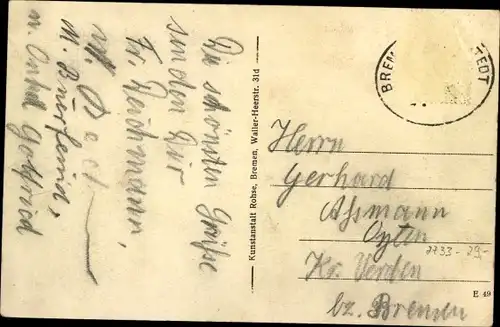 Die schönsten Grüße
senden Dir
Fr. Reichmann,
M. Buörfeind,
u. Onkel Gotfried
Kunstanstalt Rohse, Bremen, Waller-Heerstr. 31d
BREM STEDT
Herrn
Gerhard
Assmann
Oyten
2733-29,-
Kr. Verden
bz. Bremen
E 49